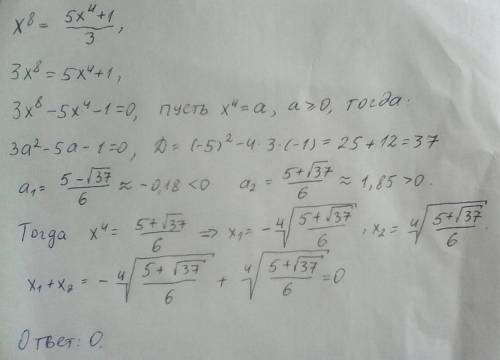 x⁸ = (5x⁴+1)/3,
3x⁸ = 5x⁴+1,
3x⁸-5x⁴-1=0, пусть x⁴=a, a≥0, тогда.
3a²-5a-1=0, D=(-5)²-4·3·(-1)=25+12=37
a₁= (5-√37)/6 ≈ -0,18<0 a₂= (5+√37)/6 ≈ 1,85>0.
Тогда x⁴= (5+√37)/6 ⇒ x₁= -⁴√((5+√37)/6), x₂= ⁴√((5+√37)/6).
x₁+x₂= -⁴√((5+√37)/6) + ⁴√((5+√37)/6)=0
Ответ: 0.